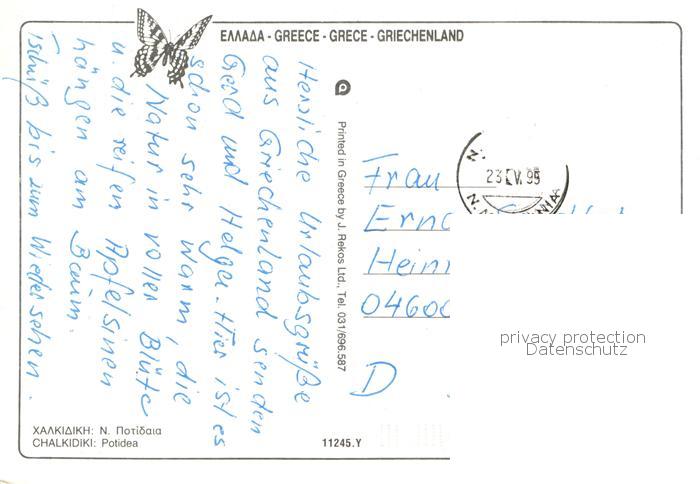 ΕΛΛΑΔΑ - GREECE - GRECE - GRIECHENLAND
Herzliche Urlaubsgrüße
aus Griechenland senden
Gerd und Helga. Hier ist es
schon sehr warm, die
Natur in voller Blüte
u. die reifen Apfelsinen
hängen am Baum.
Tschüß bis zum Wiedersehen.
Printed in Greece by J. Rekos Ltd., Tel. 031/696.587
23 V. 95
Frau
D
privacy protection
Datenschutz
ΧΑΛΚΙΔΙΚΗ: Ν. Ποτίδαια
CHALKIDIKI: Potidea
11245.Y